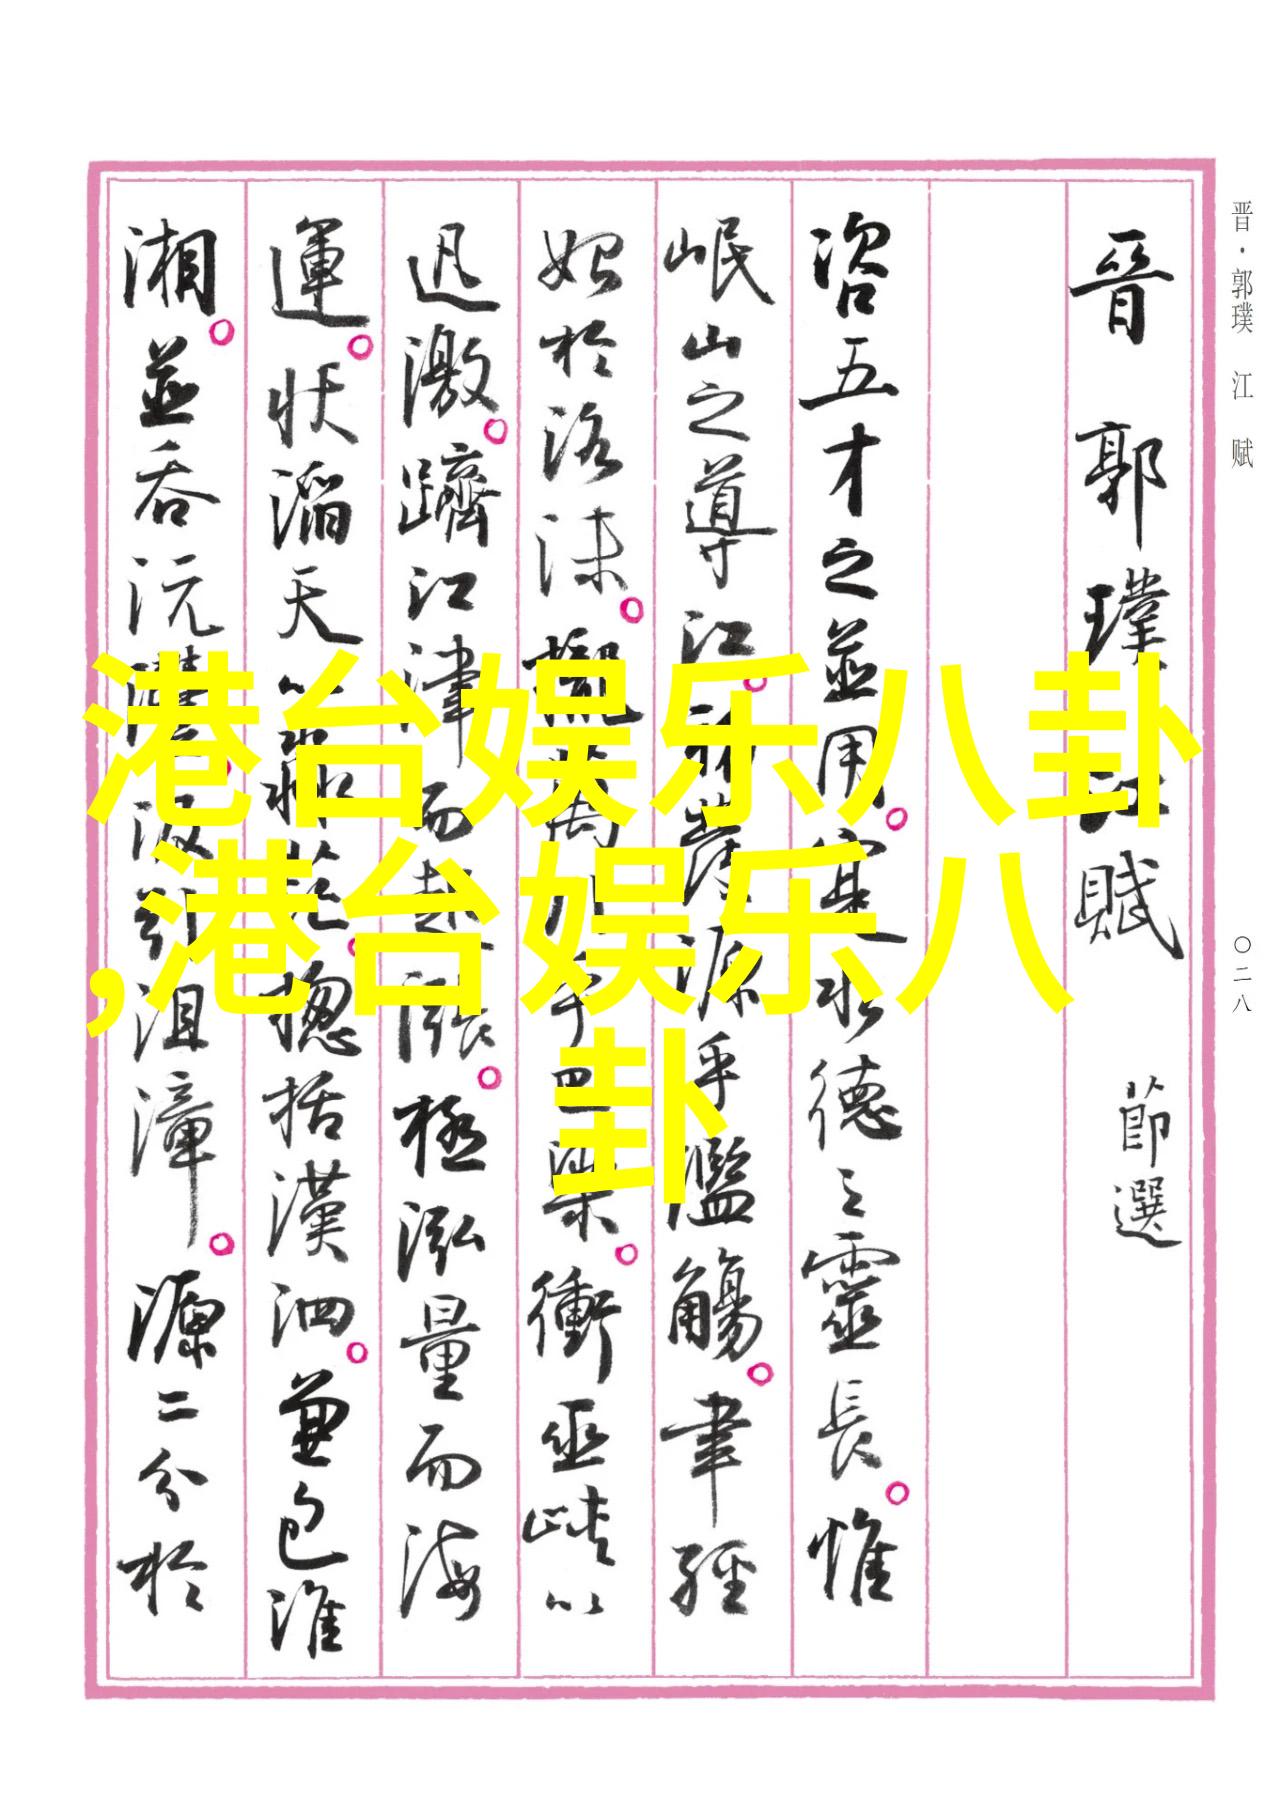 晋·郭璞 江 赋
〇二八
晉 郭 璞 江 賦 節選
咨五才之並用寔水德之靈長惟
岷山之導江初發源乎濫觴聿經
始於洛沬攏萬川乎巴梁衝巫峽以
迅激躋江津而起漲極泓量而海
運狀滔天以淼茫揔括漢泗兼包淮
湘並吞沅澧汲引沮漳源二分於
港台娱乐八卦
,港台娱乐八
卦